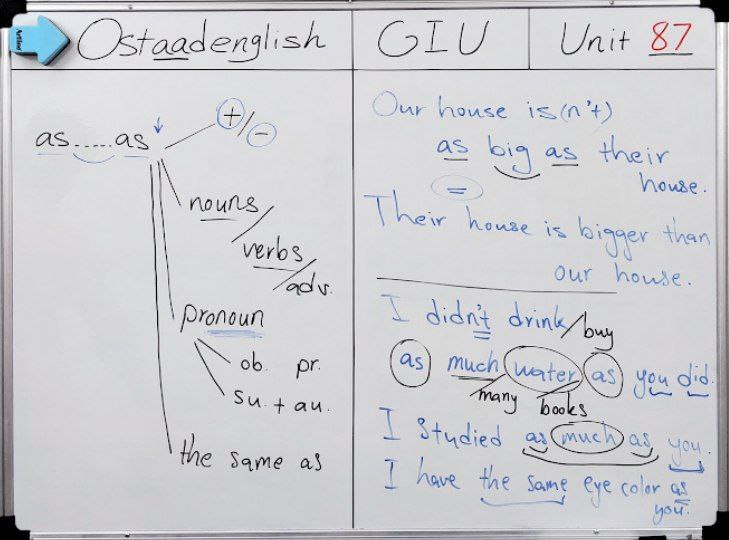 Artline
Ostaadenglish
GIU
Unit 87
as.....as
+/-
nouns/
verbs/
adv.
pronoun
ob. pr.
su. + au.
the same as
Our house is(n't)
as big as their
house.
=
Their house is bigger than
our house.
I didn't drink/buy
as much water as you did.
many books
I studied as much as you.
I have the same eye color as
you.